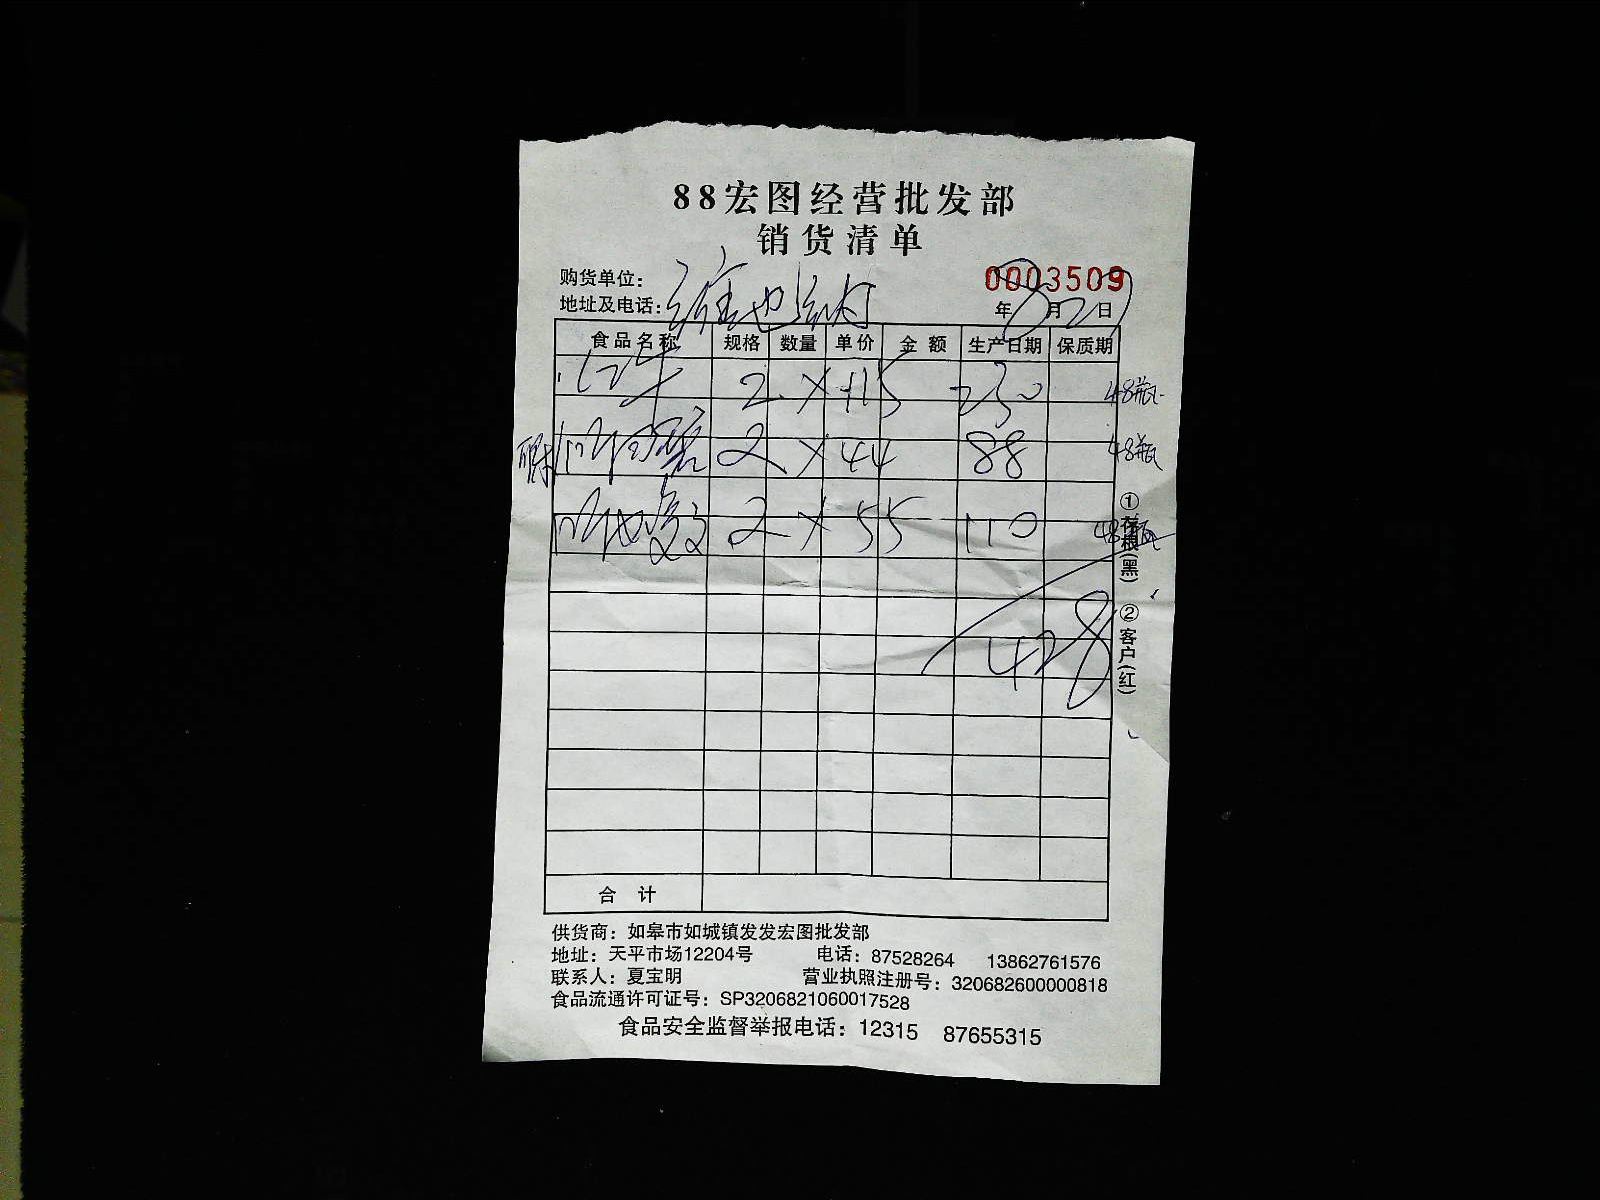 88宏图经营批发部
销货清单
购货单位：
0003509
地址及电话：维也纳
年 8月2日
食品名称 规格 数量 单价 金额 生产日期 保质期
红牛 2 × 115 230 48瓶
2 × 44 88 48瓶
2 × 55 110 48瓶
428
①存根(黑) ②客户(红)
合计
供货商：如皋市如城镇发发宏图批发部
地址：天平市场12204号 电话：87528264 13862761576
联系人：夏宝明 营业执照注册号：320682600000818
食品流通许可证号：SP3206821060017528
食品安全监督举报电话：12315 87655315